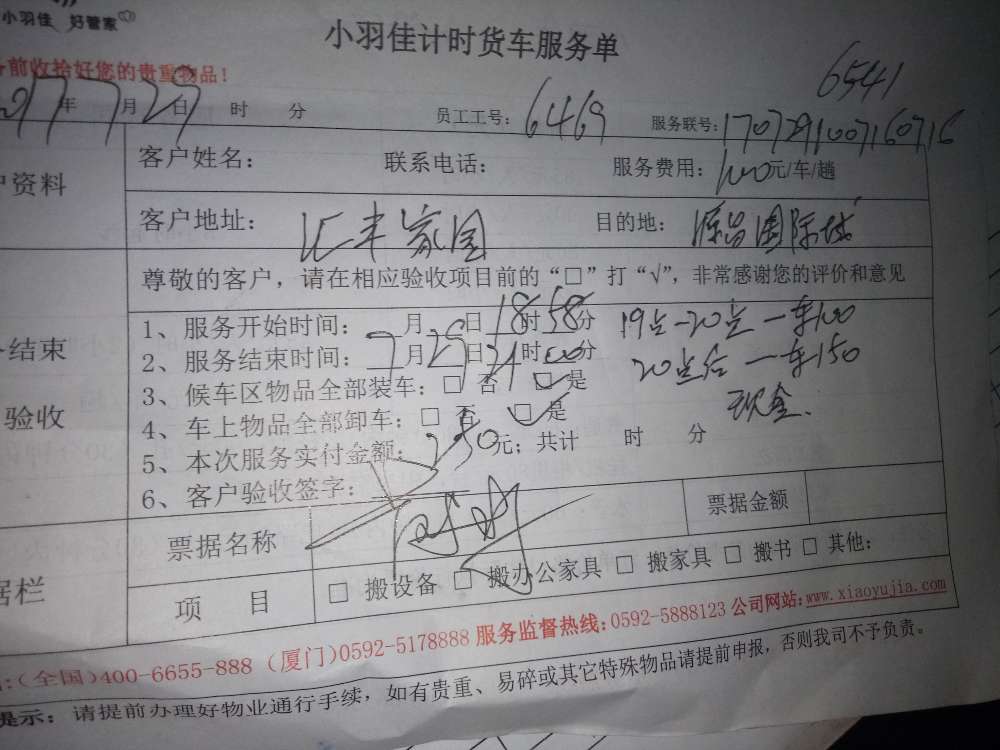 小羽佳 好管家
小羽佳计时货车服务单
前收拾好您的贵重物品！
6541
17年7月29日 时 分 员工工号：6469 服务联号：1707291007160716
户资料 客户姓名： 联系电话： 服务费用：100元/车/趟
客户地址：汇丰家园 目的地：源昌国际城
尊敬的客户，请在相应验收项目前的“□”打“√”，非常感谢您的评价和意见
结束
验收
1、服务开始时间： 月 日18时58分 19点-20点一车100
2、服务结束时间：7月29日21时00分 20点后一车150
3、候车区物品全部装车：□ 否 □ 是 现金.
4、车上物品全部卸车：□ 否 □ 是
5、本次服务实付金额：250元；共计 时 分
6、客户验收签字：
据栏 票据名称 票据金额
项 目 □ 搬设备 □ 搬办公家具 □ 搬家具 □ 搬书 □ 其他：
：（全国）400-6655-888 （厦门）0592-5178888 服务监督热线：0592-5888123 公司网站：www.xiaoyujia.com
提示：请提前办理好物业通行手续，如有贵重、易碎或其它特殊物品请提前申报，否则我司不予负责。